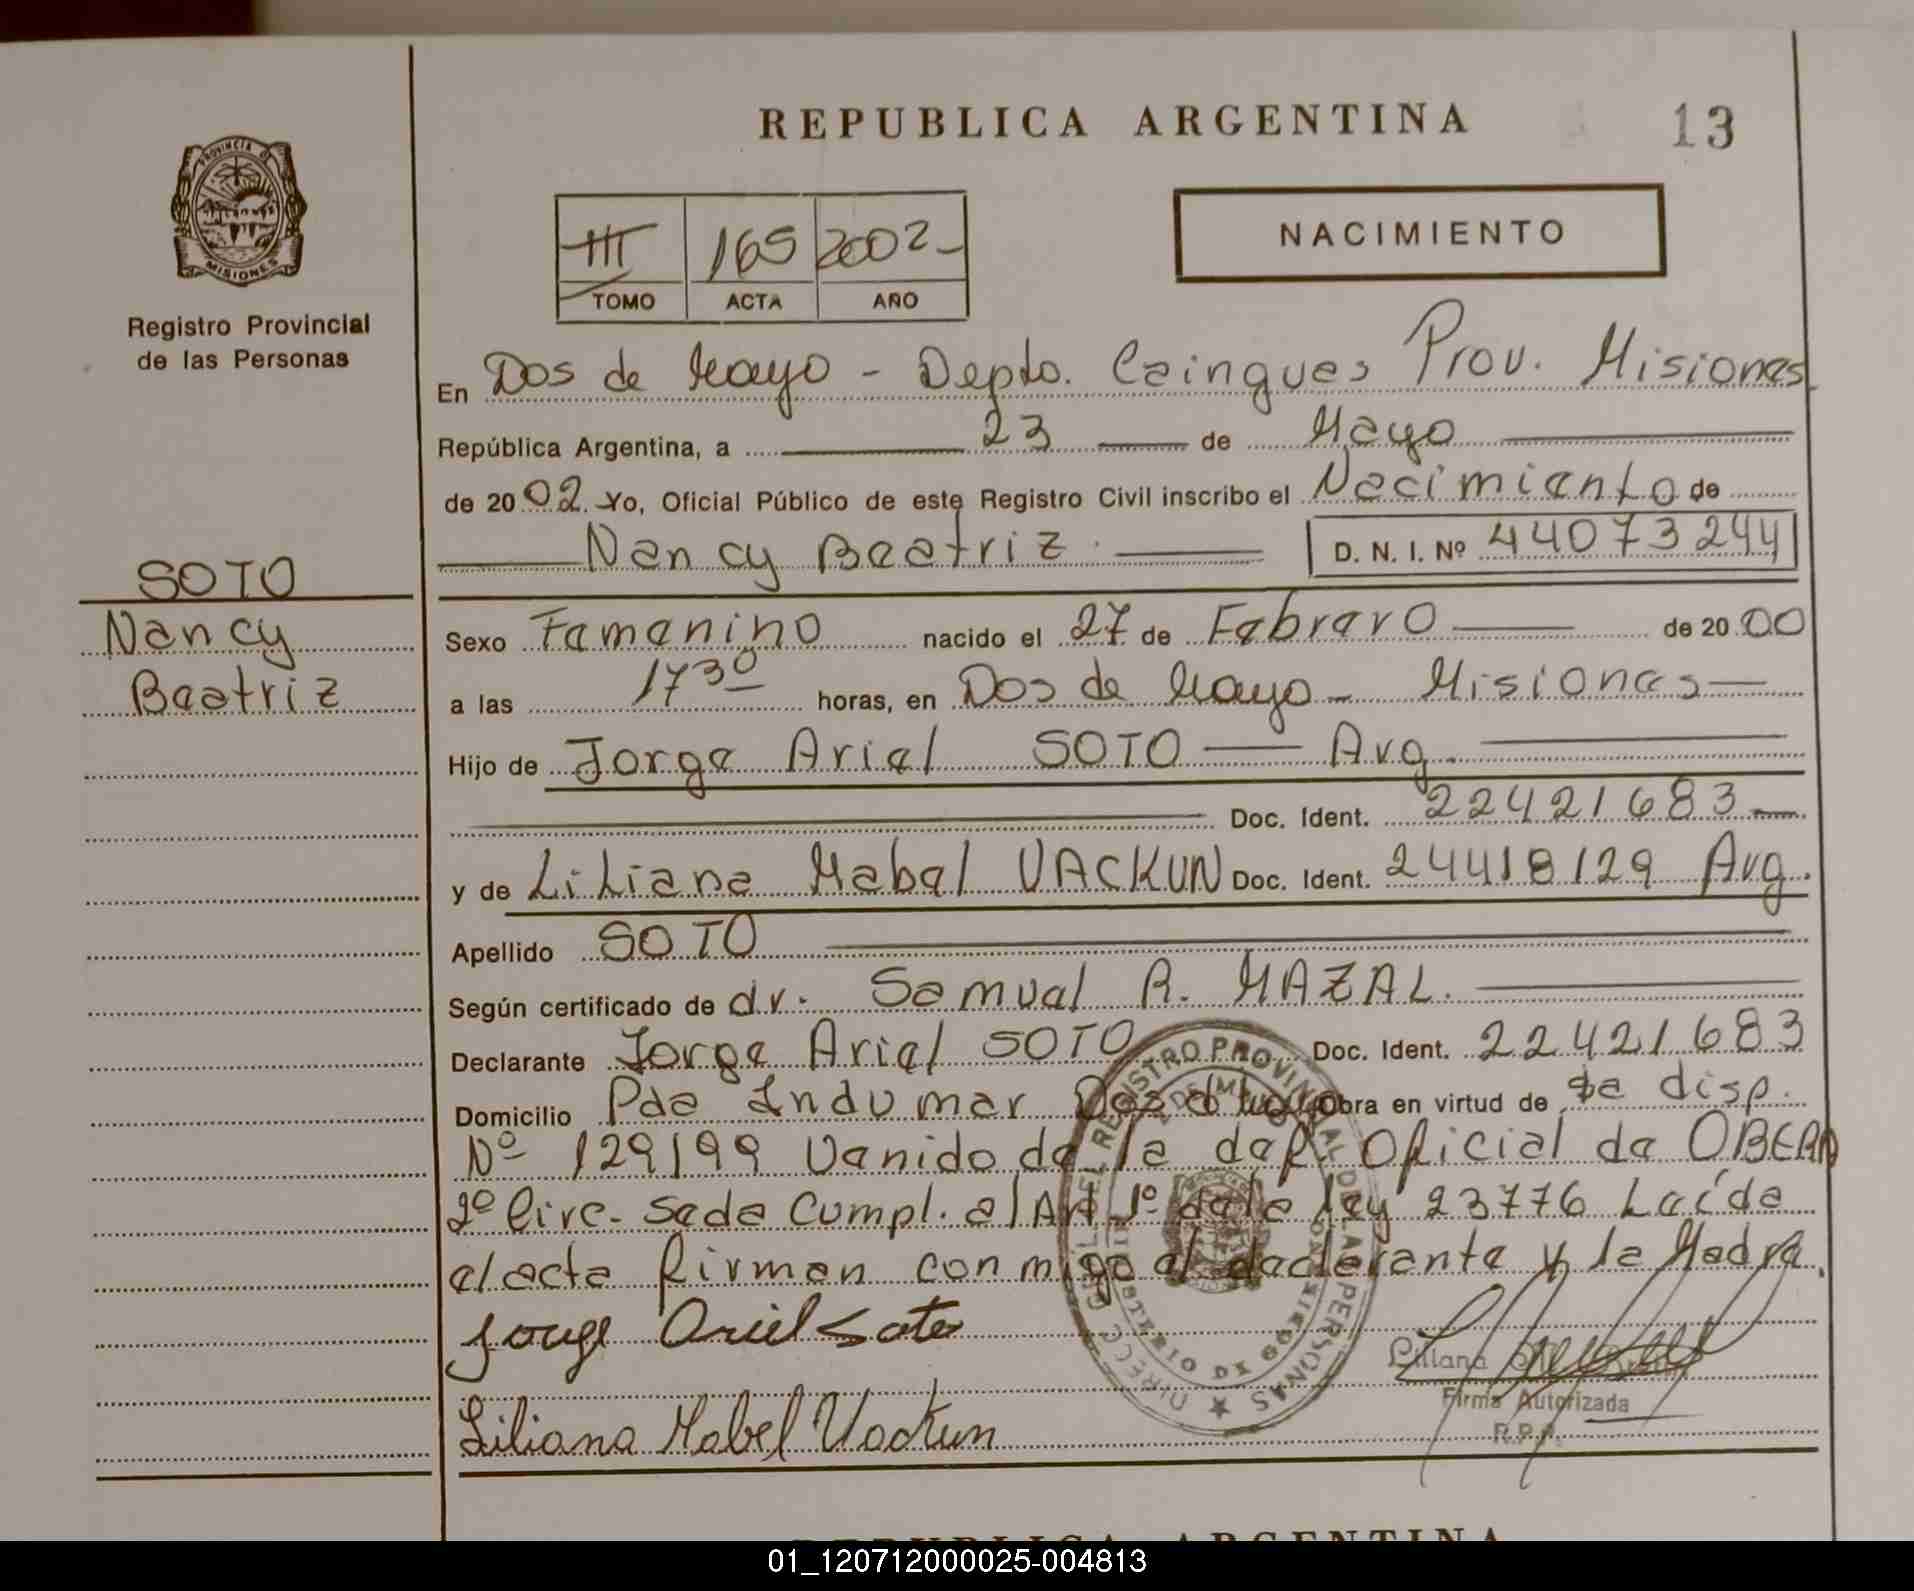 REPUBLICA ARGENTINA
13
PROVINCIA DE
MISIONES
Registro Provincial
de las Personas
III 165 2002
TOMO ACTA AÑO
NACIMIENTO
En Dos de Mayo - Depto. Cainguas Prov. Misiones
República Argentina, a 23 de Mayo
de 2002. Yo, Oficial Público de este Registro Civil inscribo el Nacimiento de
Nancy Beatriz. D. N. I. Nº 44073244
SOTO
Nancy
Beatriz
Sexo Femenino nacido el 27 de Febrero de 2000
a las 17 30 horas, en Dos de Mayo - Misiones
Hijo de Jorge Ariel SOTO Arg.
Doc. Ident. 22421683
y de Liliana Mabel VACKUN Doc. Ident. 24418129 Arg.
Apellido SOTO
Según certificado de dr. Samuel R. MAZAL.
Declarante Jorge Ariel SOTO Doc. Ident. 22421683
Domicilio Pda Indumar Dos de Mayo Obra en virtud de se disp.
Nº 129/99 Venido de la def. Oficial de OBERA
2º Circ. Sede Cumpl. el Art 1º de la ley 23776 Leída
el acta firman conmigo el declarante y la Madre.
Jorge Ariel Soto
Liliana Mabel Vackun
Liliana
Firma Autorizada
R.P.P.
DIRECC. GRAL. DEL REGISTRO PROVINCIAL DE LAS PERSONAS
MINISTERIO DE GOBIERNO
REPUBLICA ARGENTINA
01_120712000025-004813